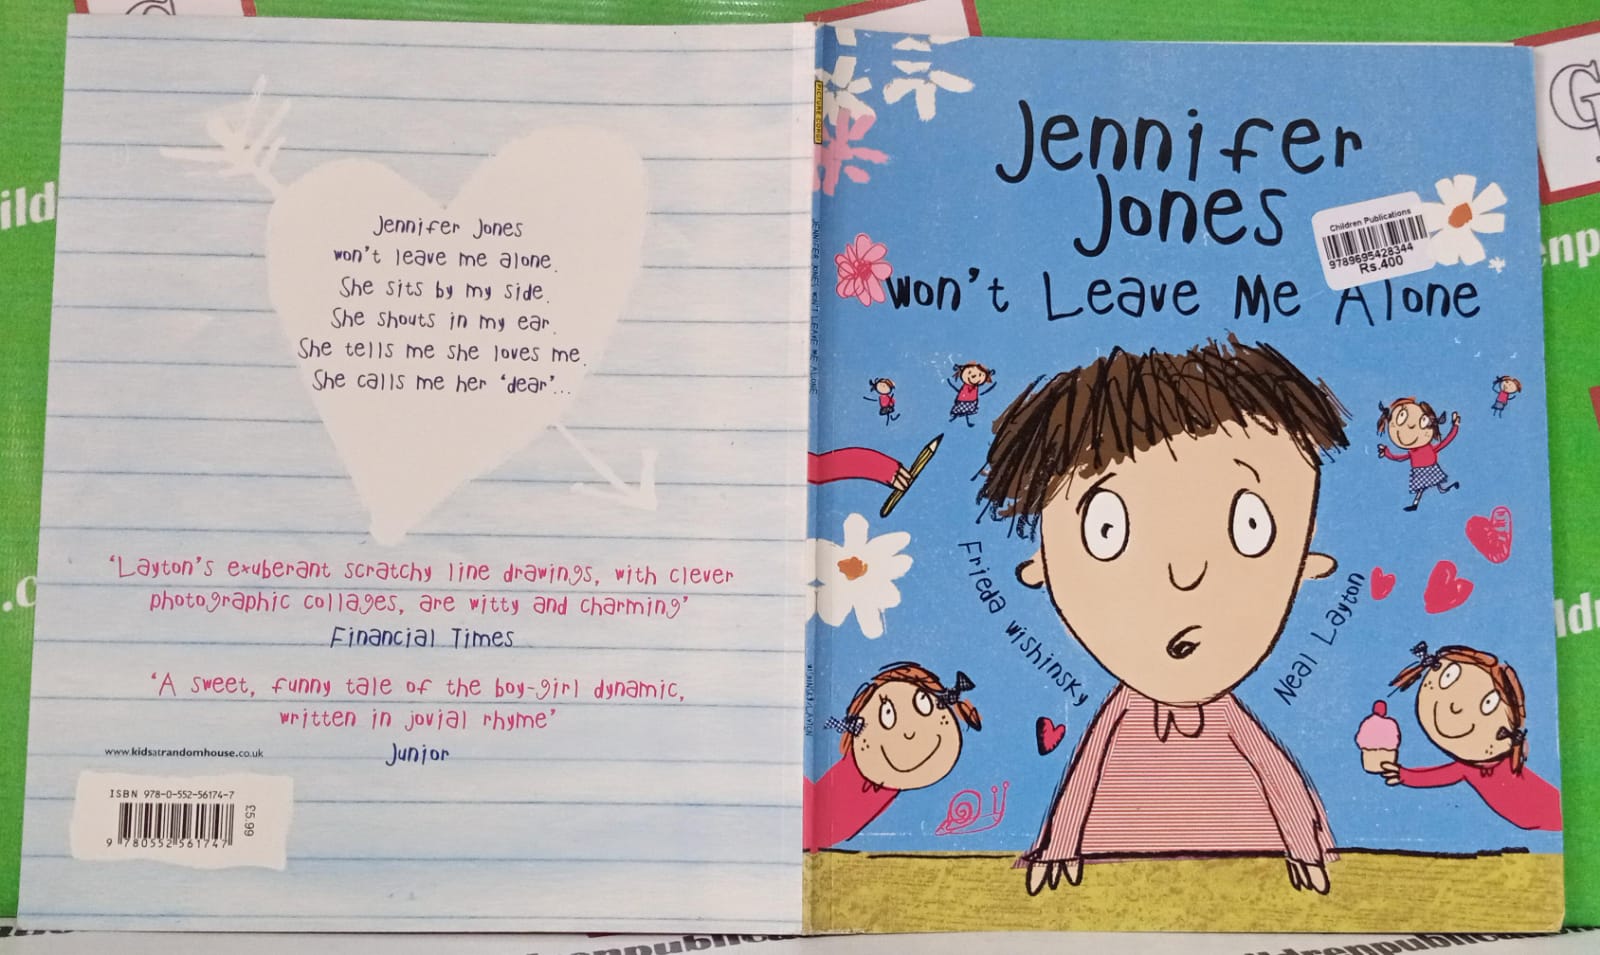 Jennifer Jones
won't leave me alone.
She sits by my side.
She shouts in my ear.
She tells me she loves me.
She calls me her 'dear'...
'Layton's exuberant scratchy line drawings, with clever
photographic collages, are witty and charming'
Financial Times
'A sweet, funny tale of the boy-girl dynamic,
written in jovial rhyme'
Junior
www.kidsatrandomhouse.co.uk
ISBN 978-0-552-56174-7
£5.99
9 780552 561747
PICTURE CORGI
JENNIFER JONES WON'T LEAVE ME ALONE
WISHINSKY/LAYTON
Jennifer
Jones
won't Leave Me Alone
Children Publications
9789695428344
Rs.400
Frieda Wishinsky
Neal Layton
ild
.c
enp
ldr
enpublica
ildrenpublication